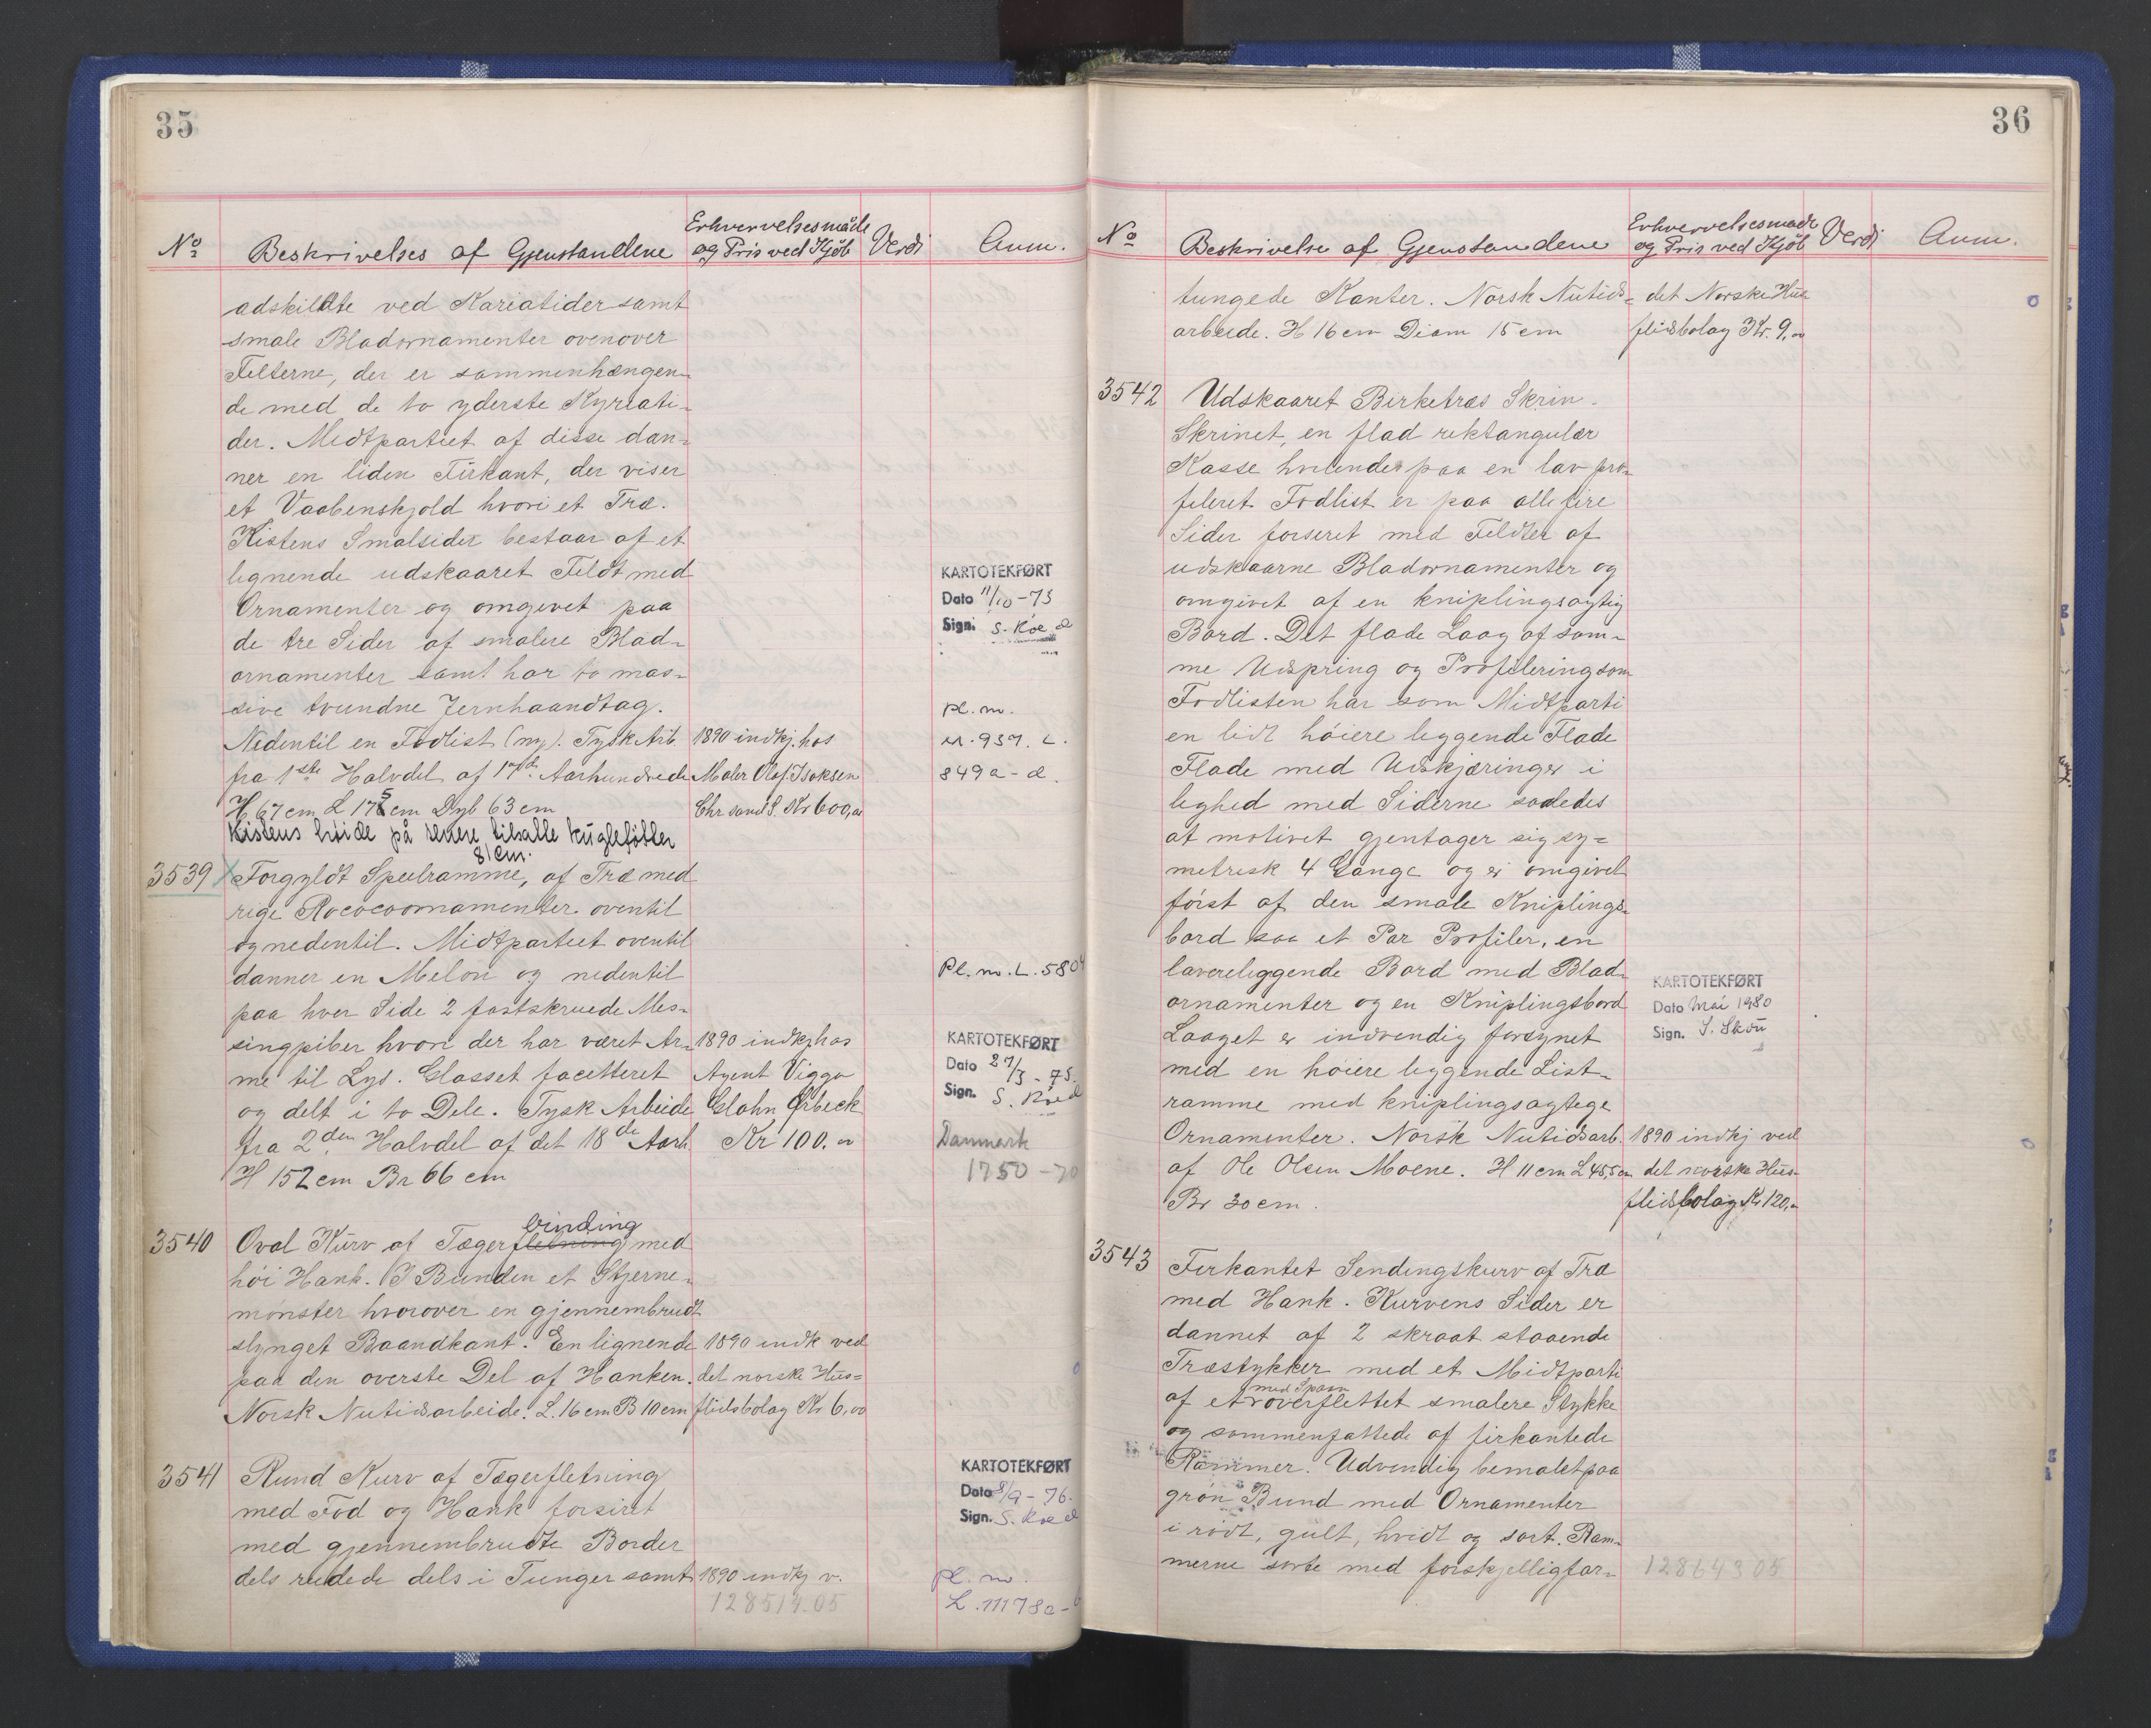 35
No Beskrivelses af Gjenstandene Erhvervelsesmåde og Pris ved Kjöb Verdi Anm.
adskildte ved Kariatider samt
smale Bladornamenter ovenover
Felterne, der er sammenhængen-
de med de to yderste Kyriati-
der. Midtpartiet af disse dan-
ner en liden Firkant, der viser
et Vaabenskjold hvori et Træ.
Kistens Smalsider bestaar af et
lignende udskaaret Feldt med
Ornamenter og omgivet paa
de tre Sider af smalere Blad-
ornamenter samt har to mas-
sive tvundne Jernhaandtag.
Nedentil en Fodlist (ny). Tysk Arb.
fra 1ste Halvdel af 17d. Aarhundrede
H 67 cm L 175 cm Dyb 63 cm
Kistens høide på senere tilsatte kugleføtter
81 cm.
1890 indkj. hos
Maler Olaf Isaksen
Chr sand S. Kr 600,00
KARTOTEKFØRT
Dato 11/10-73
Sign. S. Koed
pl. m.
849a-d.
3539 Forgyldt Speilramme, af Træ med
rige Rococoornamenter oventil
og nedentil. Midtpartiet oventil
danner en Melon og nedentil
paa hver Side 2 fastskruede Mes-
singpiber hvori der har været Ar-
me til Lys. Glasset facetteret
og delt i to Dele. Tysk Arbeide
fra 2den Halvdel af det 18de Aarh.
H 152 cm Br 66 cm
1890 indkj hos
Agent Viggo
Glahn Ørbeck
Kr 100.00
Pl. m. L. 5804
KARTOTEKFØRT
Dato 27/3-75.
Sign. S. Koed
Danmark
1750-70
3540 Oval Kurv af Tægerfletning binding med
höi Hank. I Bunden et Stjerne-
mönster hvorover en gjennembrudt
slynget Baandkant. En lignende
paa den överste Del af Hanken.
Norsk Nutidsarbeide. L. 16 cm B 10 cm
1890 indk ved
det norske Hus-
flidsbolag Kr 6,00
3541 Rund Kurv af Tægerfletning
med Fod og Hank forsiret
med gjennembrudte Border
dels rudede dels i Tunger samt
1890 indkj v.
128514.05
KARTOTEKFØRT
Dato 8/9-76.
Sign. S. Koed
pl. m.
L. 11178a-
36
No Beskrivelse af Gjenstandene Erhvervelsesmåde og Pris ved Kjöb Verdi Anm.
tungede Kanter. Norsk Nutids-
arbeide. H 16 cm Diam 15 cm
det Norske Hus
flidsbolag Kr. 9,00
3542 Udskaaret Birketræs Skrin.
Skrinet, en flad rektangulær
Kasse hvilende paa en lav pro-
fileret Fodlist er paa alle fire
Sider forseret med Feldter af
udskaarne Bladornamenter og
omgivet af en kniplingsagtig
Bord. Det flade Laag af sam-
me Udspring og Profilering som
Fodlisten har som Midtparti
en lidt höiere liggende Flade
Flade med Udskjæringer i
lighed med Siderne saaledes
at motivet gjentager sig sy-
metrisk 4 Gange og er omgivet
först af den smale Kniplings-
bord saa et Par Profiler, en
lavereliggende Bord med Blad-
ornamenter og en Kniplingsbord
Laaget er indvendig forsynet
med en höiere liggende List-
ramme med kniplingsagtige
Ornamenter. Norsk Nutidsarb.
af Ole Olsen Moene. H 11 cm L 45,5 cm
Br 30 cm.
KARTOTEKFØRT
Dato Mai 1980
Sign. S. Skou
1890 indkj ved
det norske Hus-
flidsbolag Kr 120,00
3543 Firkantet Sendingskurv af Træ
med Hank. Kurvens Sider er
dannet af 2 skraat staaende
Træstykker med et Midtparti
af et med Spaan overflettet smalere Stykke
og sammenfattede af firkantede
Rammer. Udvendig bemalet paa
grön Bund med Ornamenter
i rödt, gult, hvidt og sort. Ram-
merne sorte med forskjelligfar-
12864305